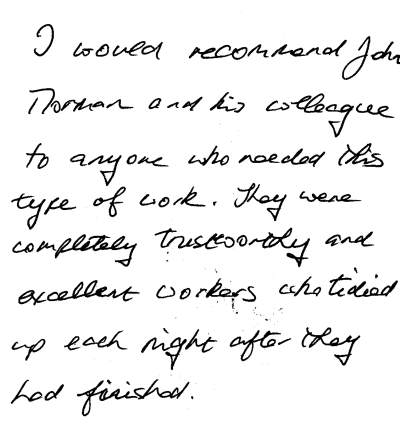 I would recommend John
Norman and his colleague
to anyone who needed this
type of work. They were
completely trustworthy and
excellent workers who tidied
up each night after they
had finished.